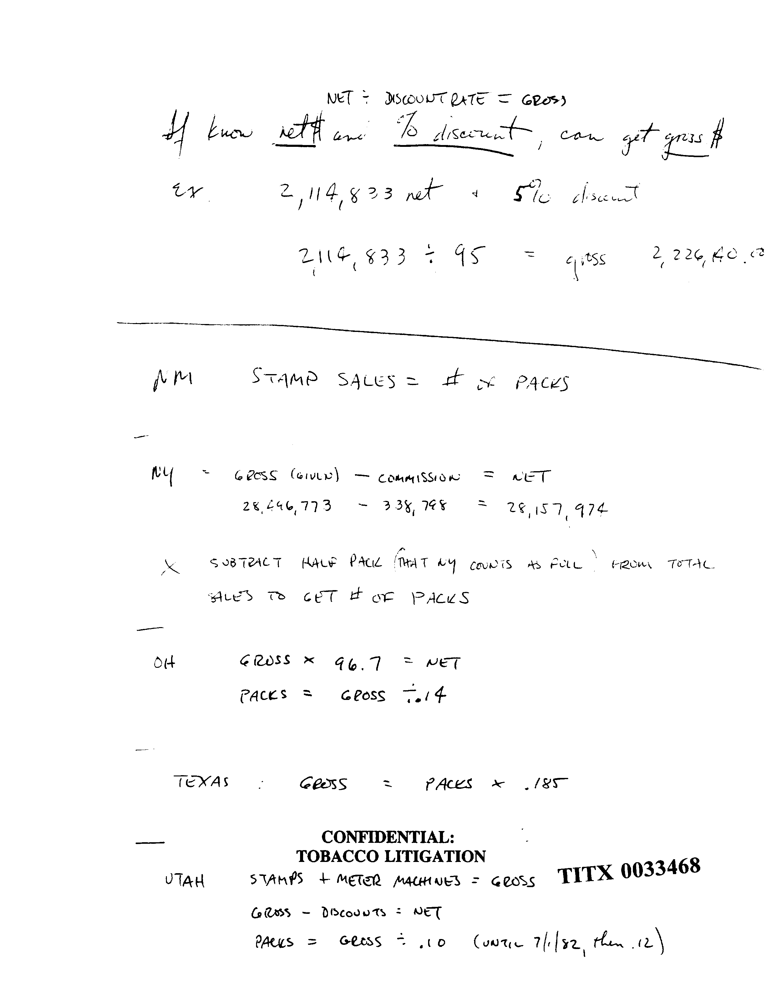 NET ÷ DISCOUNT RATE = GROSS
If know net$ and % discount, can get gross $
Ex. 2,114,833 net + 5% discount
2,114,833 ÷ 95 = gross
NM STAMP SALES = # OF PACKS
NY = GROSS (GIVEN) - COMMISSION = NET
28,496,773 - 338,798 = 28,157,974
X SUBTRACT HALF PACK (THAT NY COUNTS AS FULL) FROM TOTAL
SALES TO GET # OF PACKS
OH GROSS × 96.7 = NET
PACKS = GROSS ÷ .14
TEXAS : GROSS = PACKS × .185
CONFIDENTIAL:
TOBACCO LITIGATION
TITX 0033468
UTAH STAMPS + METER MACHINES = GROSS
GROSS - DISCOUNTS = NET
PACKS = GROSS ÷ .10 (UNTIL 7/1/82, then .12)